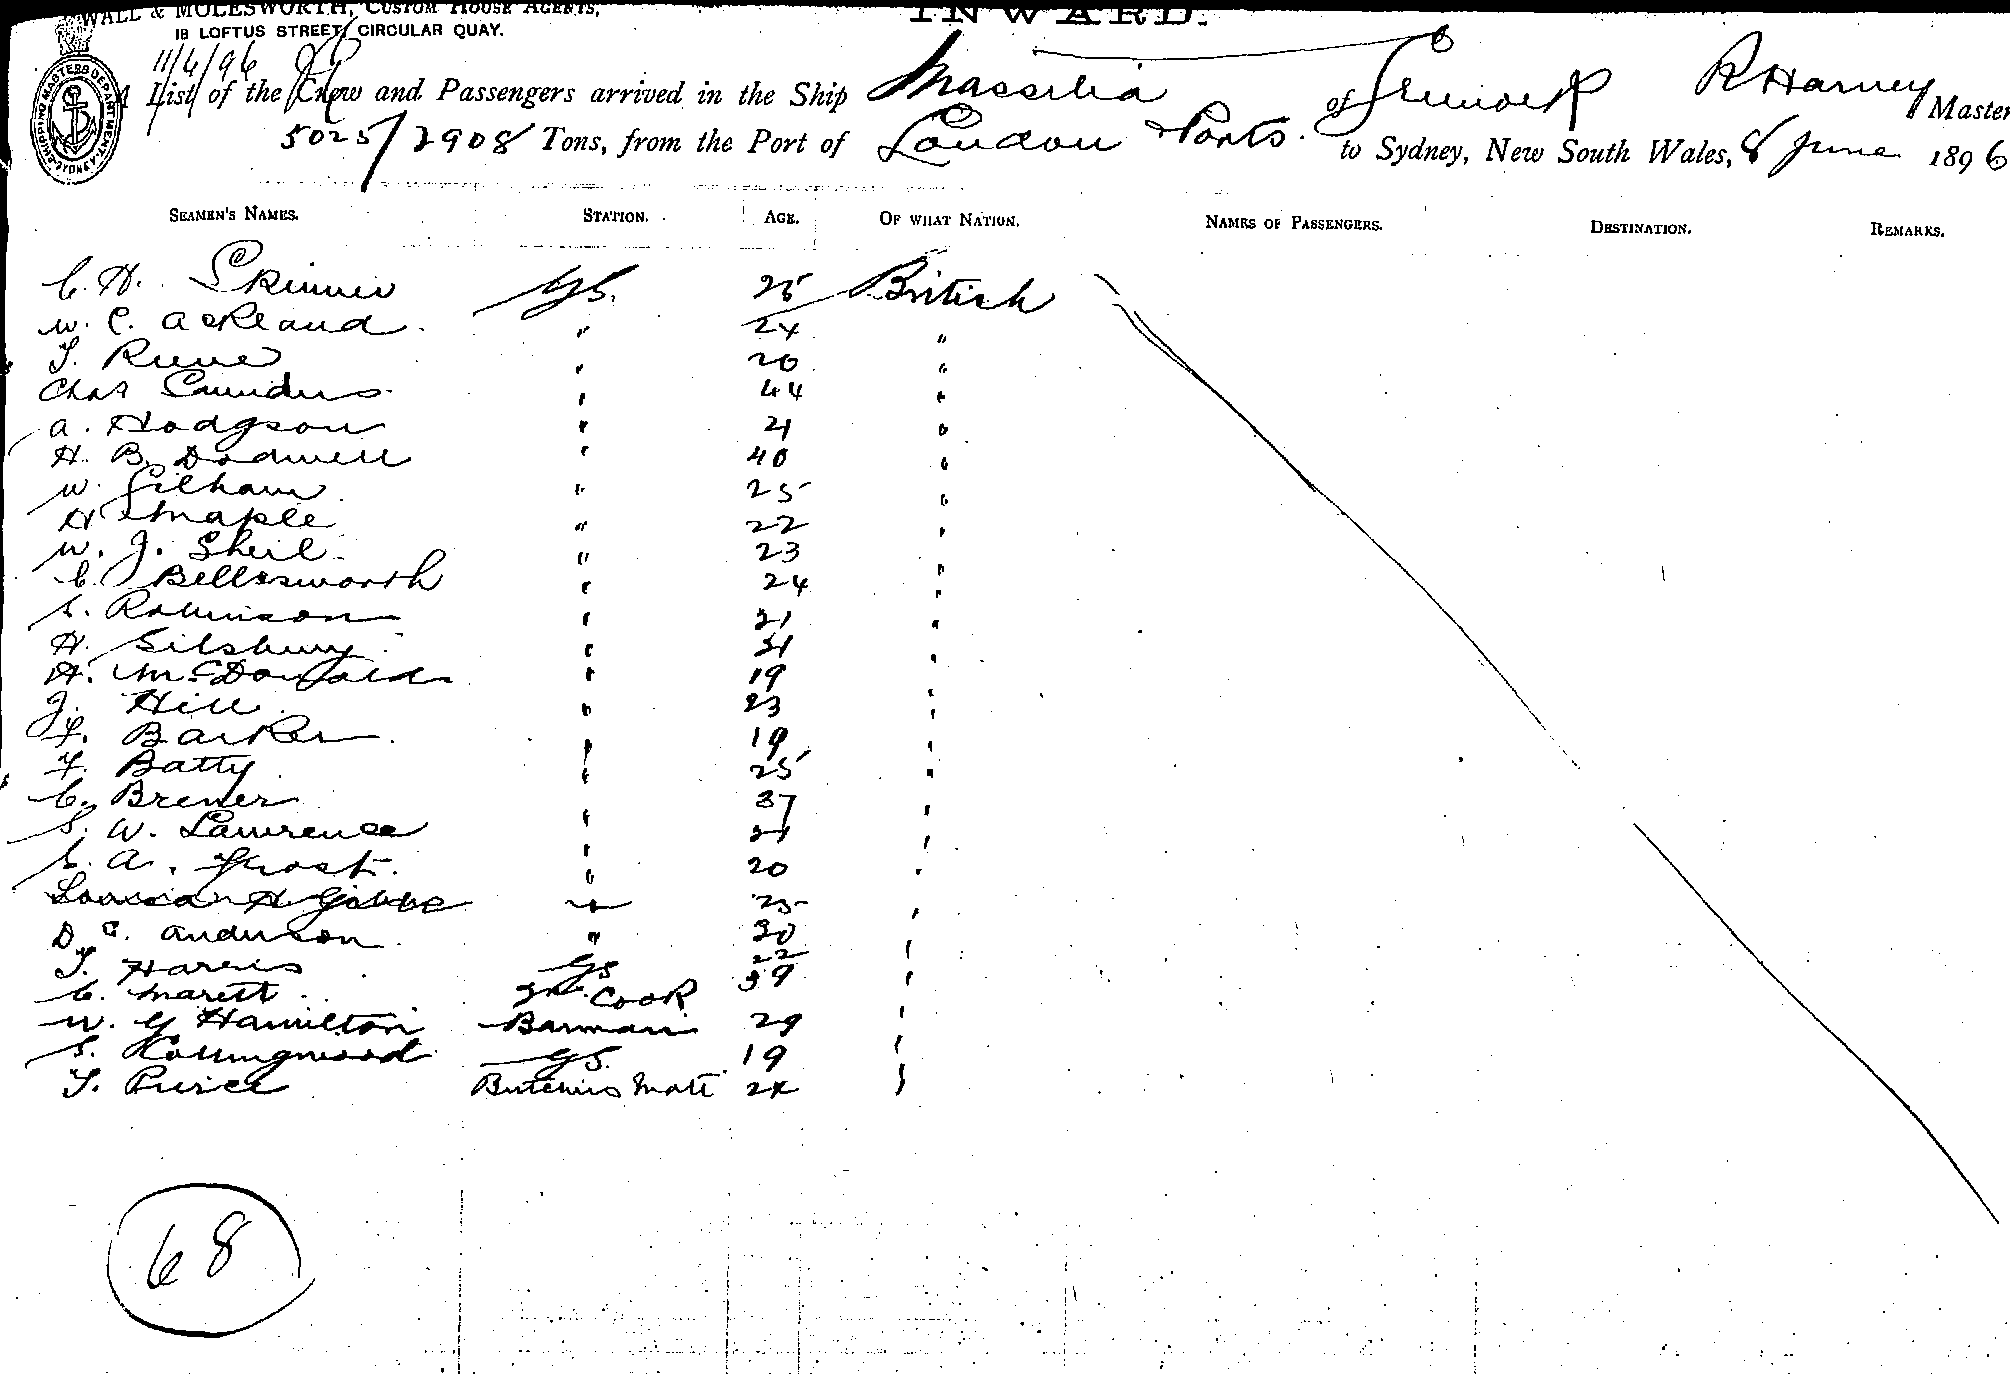 WALL & MOLESWORTH, CUSTOM HOUSE AGENTS,
18 LOFTUS STREET, CIRCULAR QUAY.
INWARD.
SHIPPING MASTERS DEPARTMENT SYDNEY
11/6/96
A List of the Crew and Passengers arrived in the Ship Massilia of Greenock R Harvey Master
5025/2908 Tons, from the Port of London & Ports to Sydney, New South Wales, 8 June 1896
SEAMEN'S NAMES. STATION. AGE. OF WHAT NATION. NAMES OF PASSENGERS. DESTINATION. REMARKS.
C. H. Skinner GS. 25 British
W. C. Ackland " 24 "
T. 20 "
Chas Saunders " 44 "
A. Hodgson " 21 "
H. B. Dodwell " 40 "
W. Gilham " 25 "
H Maple " 22 "
W. J. Sheil " 23 "
C. Bellesworth " 24 "
S. Robinson " 21 "
H. Silsbury " "
A. McDonald " 19 "
J. Hill " 23 "
F. Barker " 19 "
F. Batty " 25 "
C. Brewer " 37 "
S. W. Lawrence " 21 "
S. A. Frost " 20 "
H Gibbs " 25 "
D C. Anderson " 30 "
T. Harris GS 22 "
C. Marett Cook 39 "
W. G Hamilton Barman 29 "
S. Collingwood GS. 19 "
T. Peirce Butchers Mate 24 "
68